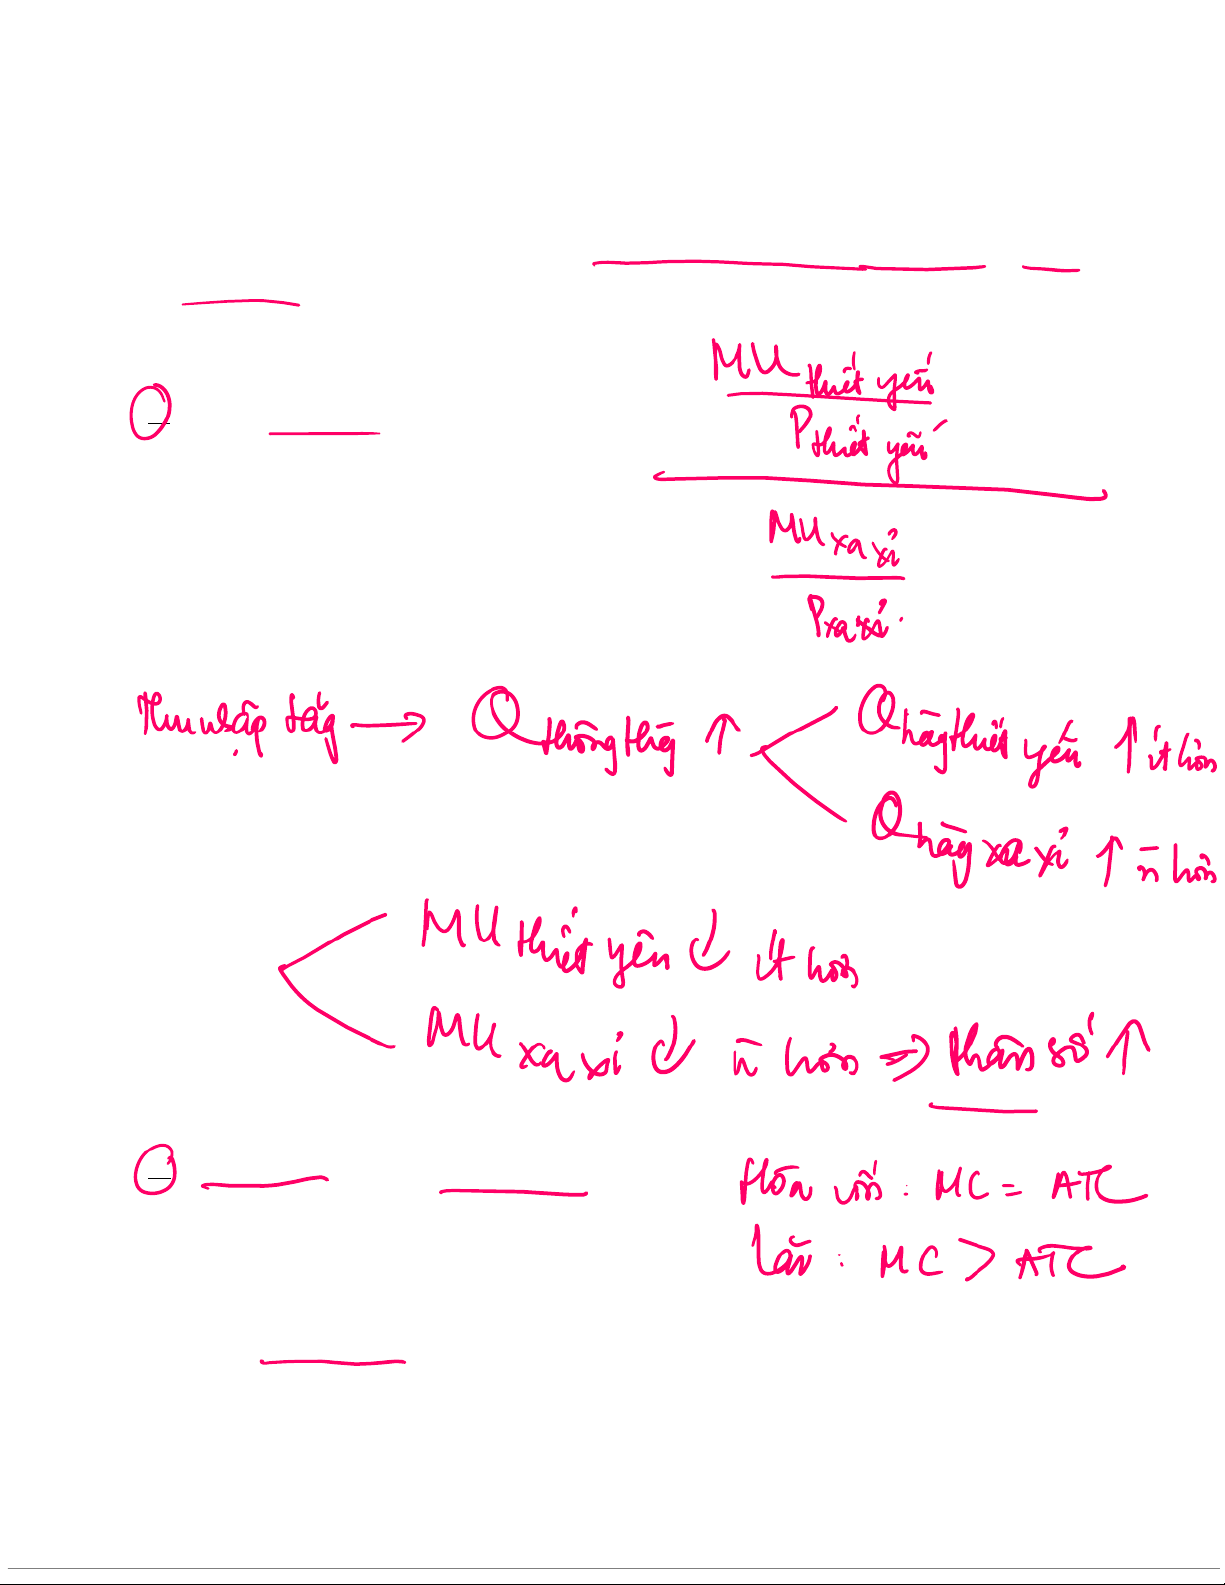 MU thiết yếu
P thiết yếu
MU xa xỉ
P xa xỉ.
Thu nhập tăg → Q thông thg ↑ Q hàg thiết yếu ↑ ít hơn
Q hàg xa xỉ ↑ n̄ hơn
MU thiết yếu ↓ ít hơn
MU xa xỉ ↓ n̄ hơn => phân số ↑
Hòa vốn : MC = ATC
Lãi : MC > ATC